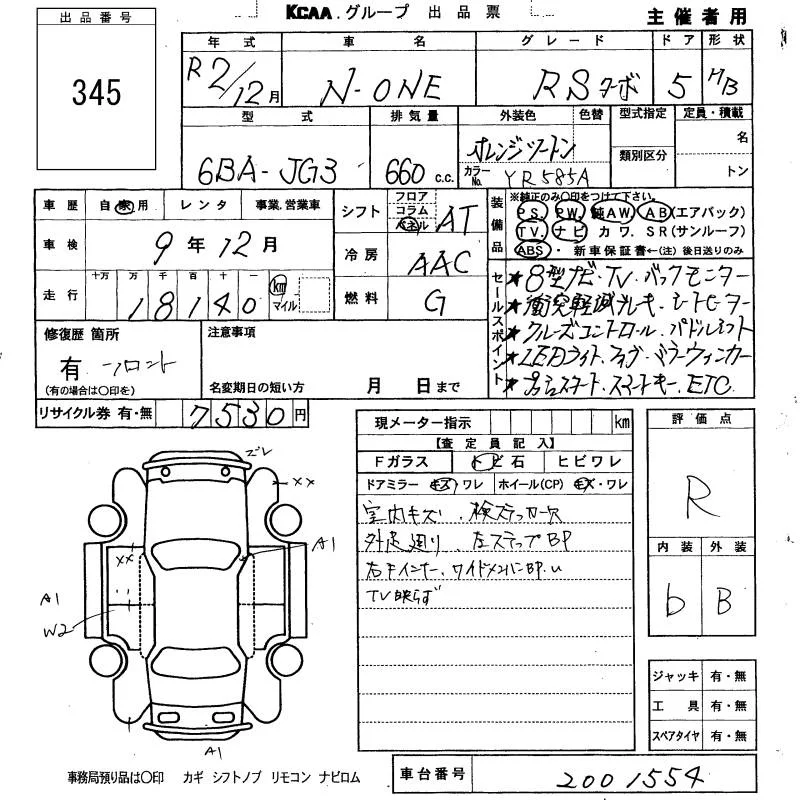 出品番号
345
KCAA.グループ 出品票
主催者用
年式 車名 グレード ドア 形状
R2/12月 N-ONE RSターボ 5 HB
型式 排気量 外装色 色替 型式指定 定員・積載
6BA-JG3 660 c.c. オレンジツートン 類別区分 名
カラーNo. YR585A トン
車歴 自家用 レンタ 事業.営業車
シフト フロア コラム パネル AT
装備品
※純正のみ〇印をつけて下さい。
PS. PW. 純AW. AB(エアバック)
TV. ナビ カワ. SR(サンルーフ)
ABS・新車保証書←(注)後日送りのみ
車検 9年12月
冷房 AAC
走行 十万 万 千 百 十 一 km マイル
18140
燃料 G
セールスポイント
★8型ナビ.TV.バックモニター
★衝突軽減ブレーキ.シートヒーター
★クルーズコントロール.パドルシフト
★LEDライト.フォグ.ミラーウィンカー
★プッシュスタート.スマートキー.ETC
修復歴 箇所
有 フロント
(有の場合は〇印を)
注意事項
名変期日の短い方 月 日まで
リサイクル券 有・無 7530円
現メーター指示 km
【査定員記入】
Fガラス トビ石 ヒビワレ
ドアミラー キズ ワレ ホイール(CP) キズ・ワレ
室内キズ.検ステッカー欠
外足廻り.左ステップBP
右Fインナー.ワイドメンバーBP.u
TV映らず
評価点
R
内装 外装
b B
ズレ
××
A1
××
A1
W2
A1
ジャッキ 有・無
工具 有・無
スペアタイヤ 有・無
事務局預り品は〇印 カギ シフトノブ リモコン ナビロム
車台番号 2001554